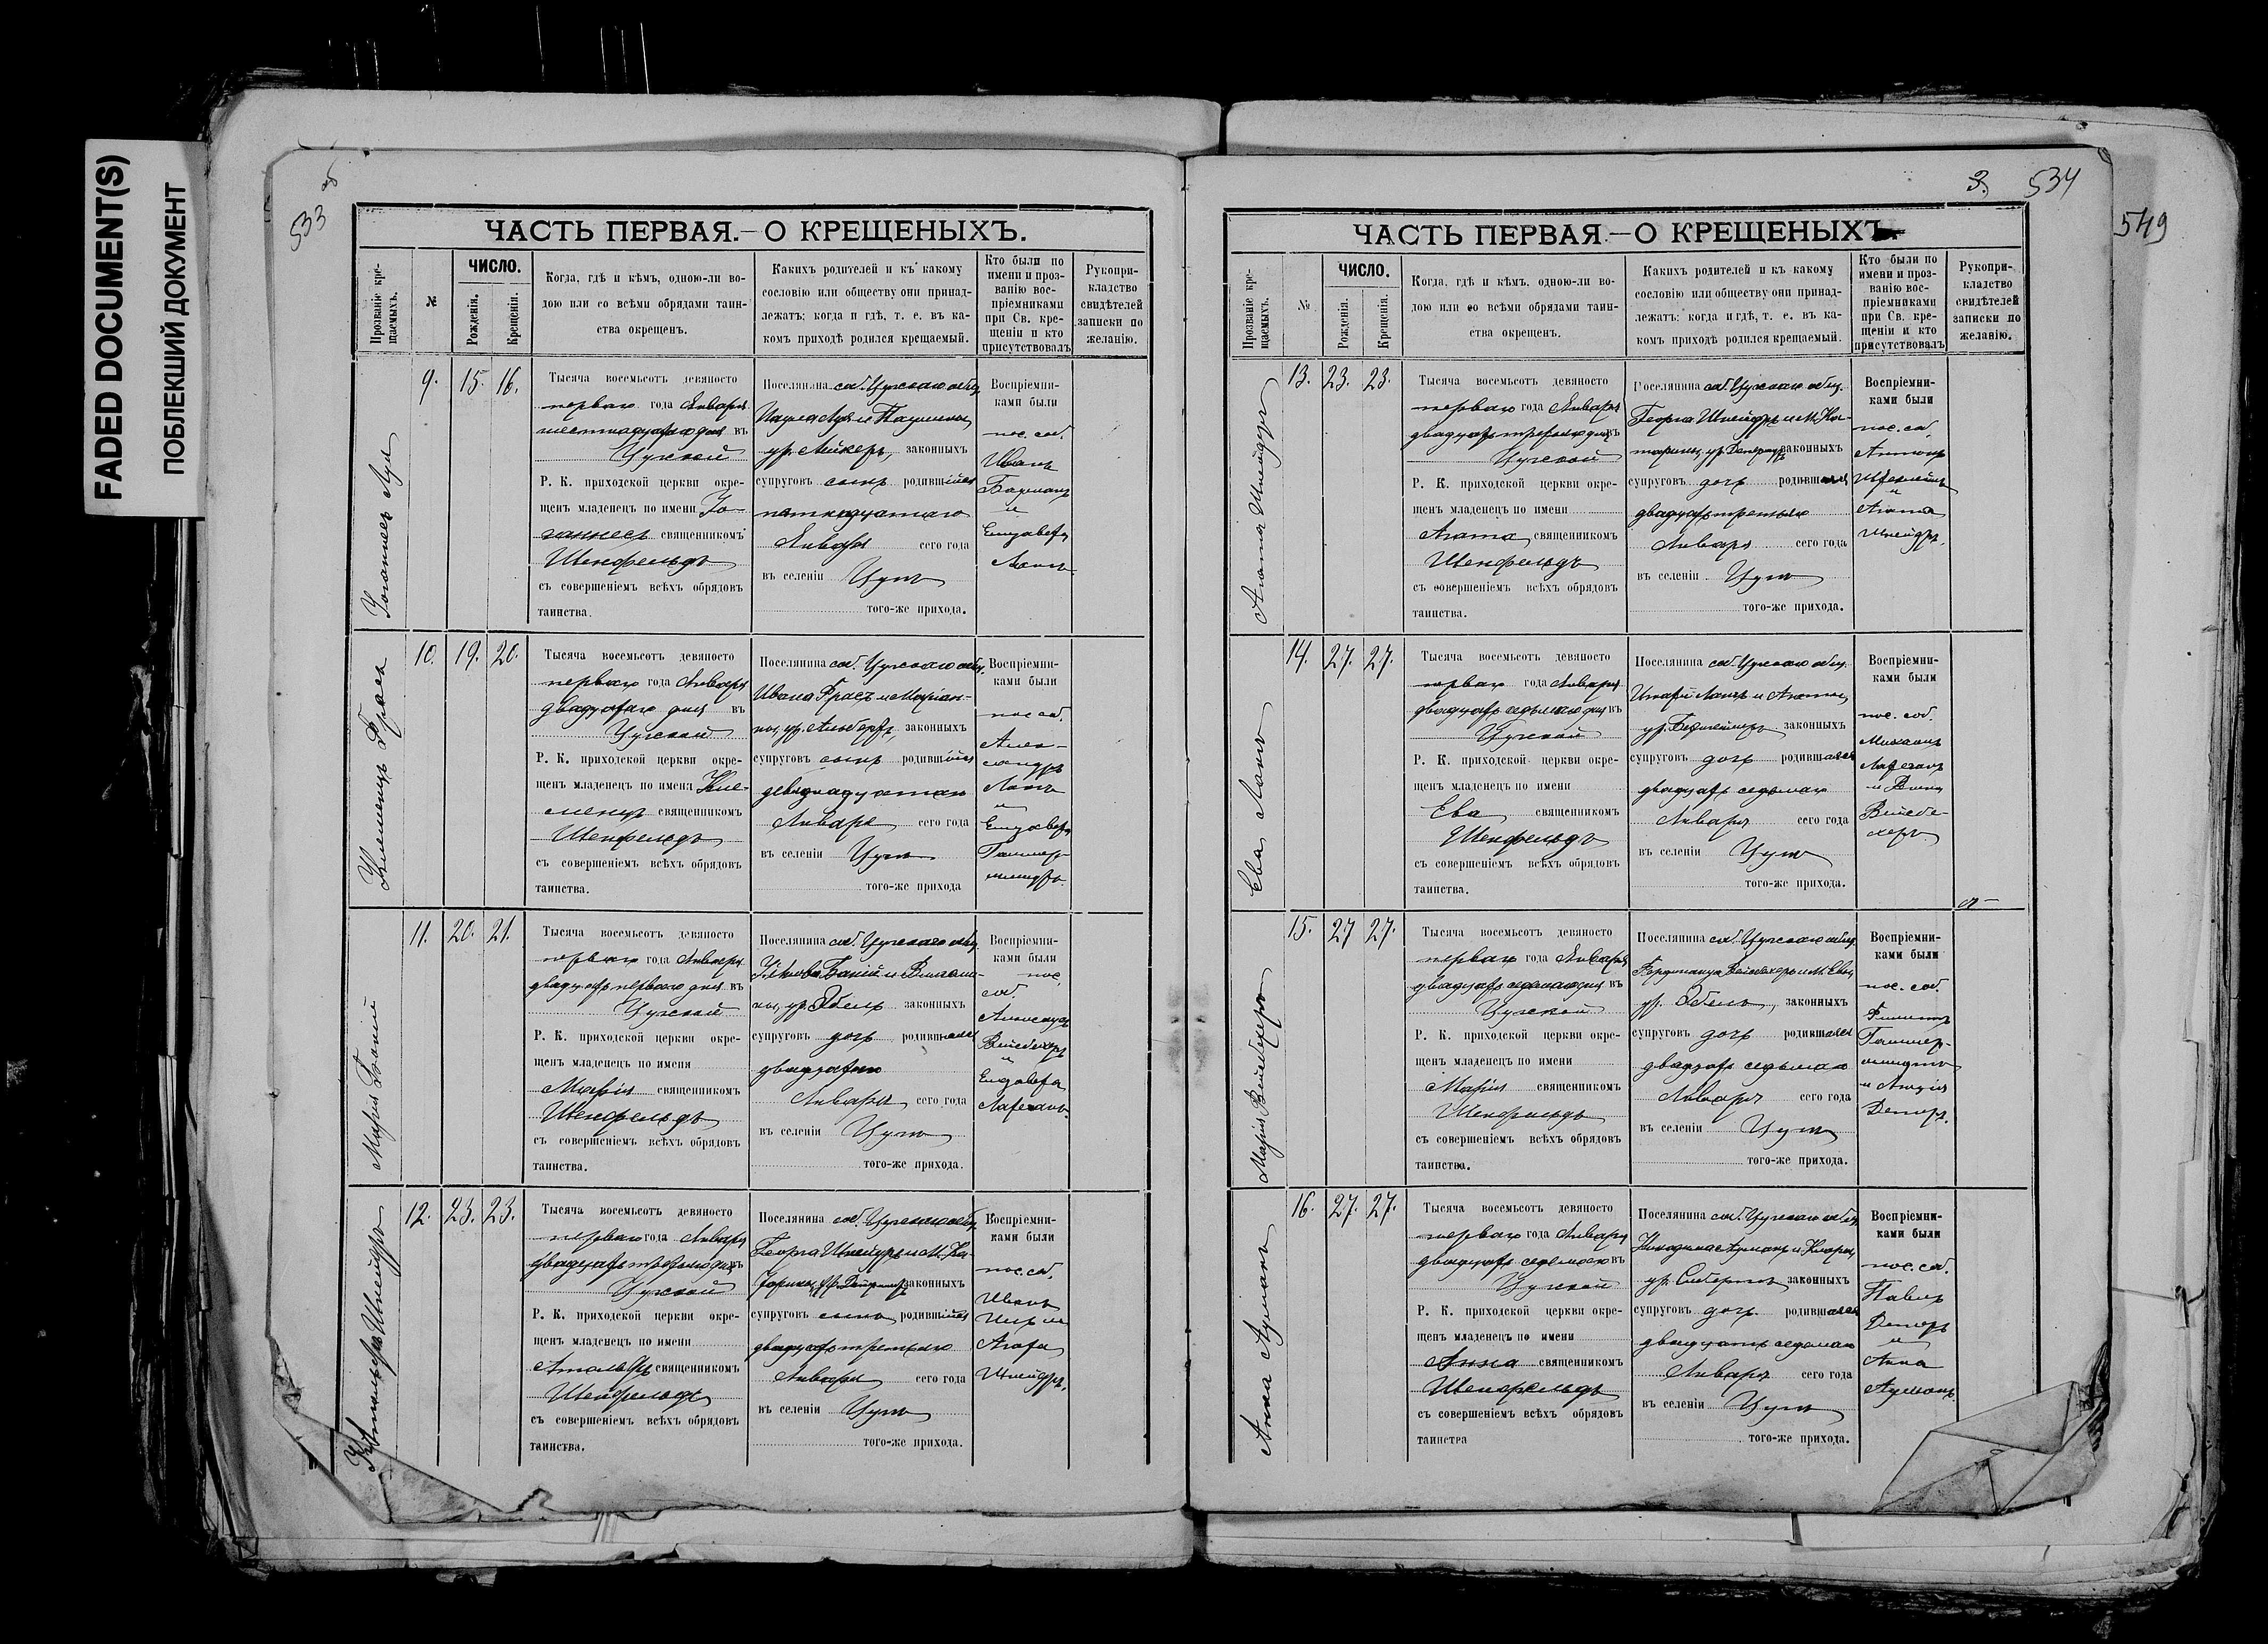 FADED DOCUMENT(S)
ПОБЛЕКШИЙ ДОКУМЕНТ
533 об
ЧАСТЬ ПЕРВАЯ.—О КРЕЩЕНЫХЪ.
Прозваніе кре-
щаемыхъ.
№
ЧИСЛО.
Рожденія.
Крещенія.
Когда, гдѣ и кѣмъ, одною-ли во-
дою или со всѣми обрядами таин-
ства окрещенъ.
Какихъ родителей и къ какому
сословію или обществу они принад-
лежатъ; когда и гдѣ, т. е. въ ка-
комъ приходѣ родился крещаемый.
Кто были по
имени и проз-
ванію вос-
пріемниками
при Св. кре-
щеніи и кто
присутствовалъ
Рукопри-
кладство
свидѣтелей
записки по
желанію.
Іоаннесъ
9. 15. 16.
Тысяча восемьсотъ девяносто
перваго года Января
шестнадцатаго дня въ
Цугской
Р. К. приходской церкви окре-
щенъ младенецъ по имени Іо-
аннесъ священникомъ
Шенфельдъ
съ совершеніемъ всѣхъ обрядовъ
таинства.
Поселянина соб. Цугскаго общ.
законныхъ
супруговъ сынъ родившійся
пятнадцатаго
Января сего года
въ селеніи Цугъ
того-же прихода.
Воспріемни-
ками были
пос. соб.
Иванъ
Бахманъ
и
Елизавета
Клеменцъ
10. 19. 20.
Тысяча восемьсотъ девяносто
перваго года Января
двадцатаго дня въ
Цугской
Р. К. приходской церкви окре-
щенъ младенецъ по имени Кле-
менцъ священникомъ
Шенфельдъ
съ совершеніемъ всѣхъ обрядовъ
таинства.
Поселянина соб. Цугскаго общ.
Ивана и Маріан-
ны, ур. законныхъ
супруговъ сынъ родившійся
девятнадцатаго
Января сего года
въ селеніи Цугъ
того-же прихода
Воспріемни-
ками были
пос. соб.
Алек-
сандръ
и
Елизавета
Гаммер-
шмидтъ.
Марія
11. 20. 21.
Тысяча восемьсотъ девяносто
перваго года Января
двадцать перваго дня въ
Цугской
Р. К. приходской церкви окре-
щенъ младенецъ по имени
Марія священникомъ
Шенфельдъ
съ совершеніемъ всѣхъ обрядовъ
таинства.
Поселянина соб. Цугскаго общ.
ны, ур. Обель законныхъ
супруговъ дочь родившаяся
двадцатаго
Января сего года
въ селеніи Цугъ
того-же прихода.
Воспріемни-
ками были
пос.
соб.
и
Елизавета
Шнейдръ
12. 23. 23.
Тысяча восемьсотъ девяносто
перваго года Января
двадцать третьяго дня въ
Цугской
Р. К. приходской церкви окре-
щенъ младенецъ по имени
священникомъ
Шенфельдъ
съ совершеніемъ всѣхъ обрядовъ
таинства.
Поселянина соб. Цугскаго общ.
Георга Шнейдръ и М. Ка-
законныхъ
супруговъ сынъ родившійся
двадцать третьяго
Января сего года
въ селеніи Цугъ
того-же прихода.
Воспріемни-
ками были
пос. соб.
Иванъ
Агата
Шнейдръ.
3. 534
549
ЧАСТЬ ПЕРВАЯ.—О КРЕЩЕНЫХЪ.
Прозваніе кре-
щаемыхъ.
№
ЧИСЛО.
Рожденія.
Крещенія.
Когда, гдѣ и кѣмъ, одною-ли во-
дою или со всѣми обрядами таин-
ства окрещенъ.
Какихъ родителей и къ какому
сословію или обществу они принад-
лежатъ; когда и гдѣ, т. е. въ ка-
комъ приходѣ родился крещаемый.
Кто были по
имени и проз-
ванію вос-
пріемниками
при Св. кре-
щеніи и кто
присутствовалъ
Рукопри-
кладство
свидѣтелей
записки по
желанію.
Агата Шнейдръ
13. 23. 23.
Тысяча восемьсотъ девяносто
перваго года Января
двадцать третьяго дня въ
Цугской
Р. К. приходской церкви окре-
щенъ младенецъ по имени
Агата священникомъ
Шенфельдъ
съ совершеніемъ всѣхъ обрядовъ
таинства.
Поселянина соб. Цугскаго общ.
Георга Шнейдръ и М. Ка-
тарины, ур. законныхъ
супруговъ дочь родившаяся
двадцать третьяго
Января сего года
въ селеніи Цугъ
того-же прихода.
Воспріемни-
ками были
пос. соб.
Антонъ
и
Агата
Шнейдръ.
Ева
14. 27. 27.
Тысяча восемьсотъ девяносто
перваго года Января
двадцать седьмаго дня въ
Цугской
Р. К. приходской церкви окре-
щенъ младенецъ по имени
Ева священникомъ
Шенфельдъ
съ совершеніемъ всѣхъ обрядовъ
таинства.
Поселянина соб. Цугскаго общ.
и Агаты,
ур. законныхъ
супруговъ дочь родившаяся
двадцать седьмаго
Января сего года
въ селеніи Цугъ
того-же прихода.
Воспріемни-
ками были
пос. соб.
Михаилъ
Марія
15. 27 27.
Тысяча восемьсотъ девяносто
перваго года Января
двадцать седьмаго дня въ
Цугской
Р. К. приходской церкви окре-
щенъ младенецъ по имени
Марія священникомъ
Шенфельдъ
съ совершеніемъ всѣхъ обрядовъ
таинства.
Поселянина соб. Цугскаго общ.
и М. Евы,
ур. Обель, законныхъ
супруговъ дочь родившаяся
двадцать седьмаго
Января сего года
въ селеніи Цугъ
того-же прихода.
Воспріемни-
ками были
пос. соб.
Гаммер-
шмидтъ
Анна Ауманъ
16. 27. 27.
Тысяча восемьсотъ девяносто
перваго года Января
двадцать седьмаго въ
Цугской
Р. К. приходской церкви окре-
щенъ младенецъ по имени
Анна священникомъ
Шенфельдъ
съ совершеніемъ всѣхъ обрядовъ
таинства
Поселянина соб. Цугскаго общ.
Никодима Ауманъ и Клары,
ур. законныхъ
супруговъ дочь родившаяся
двадцать седьмаго
Января сего года
въ селеніи Цугъ
того-же прихода.
Воспріемни-
ками были
пос. соб.
Павелъ
и
Анна
Ауманъ.